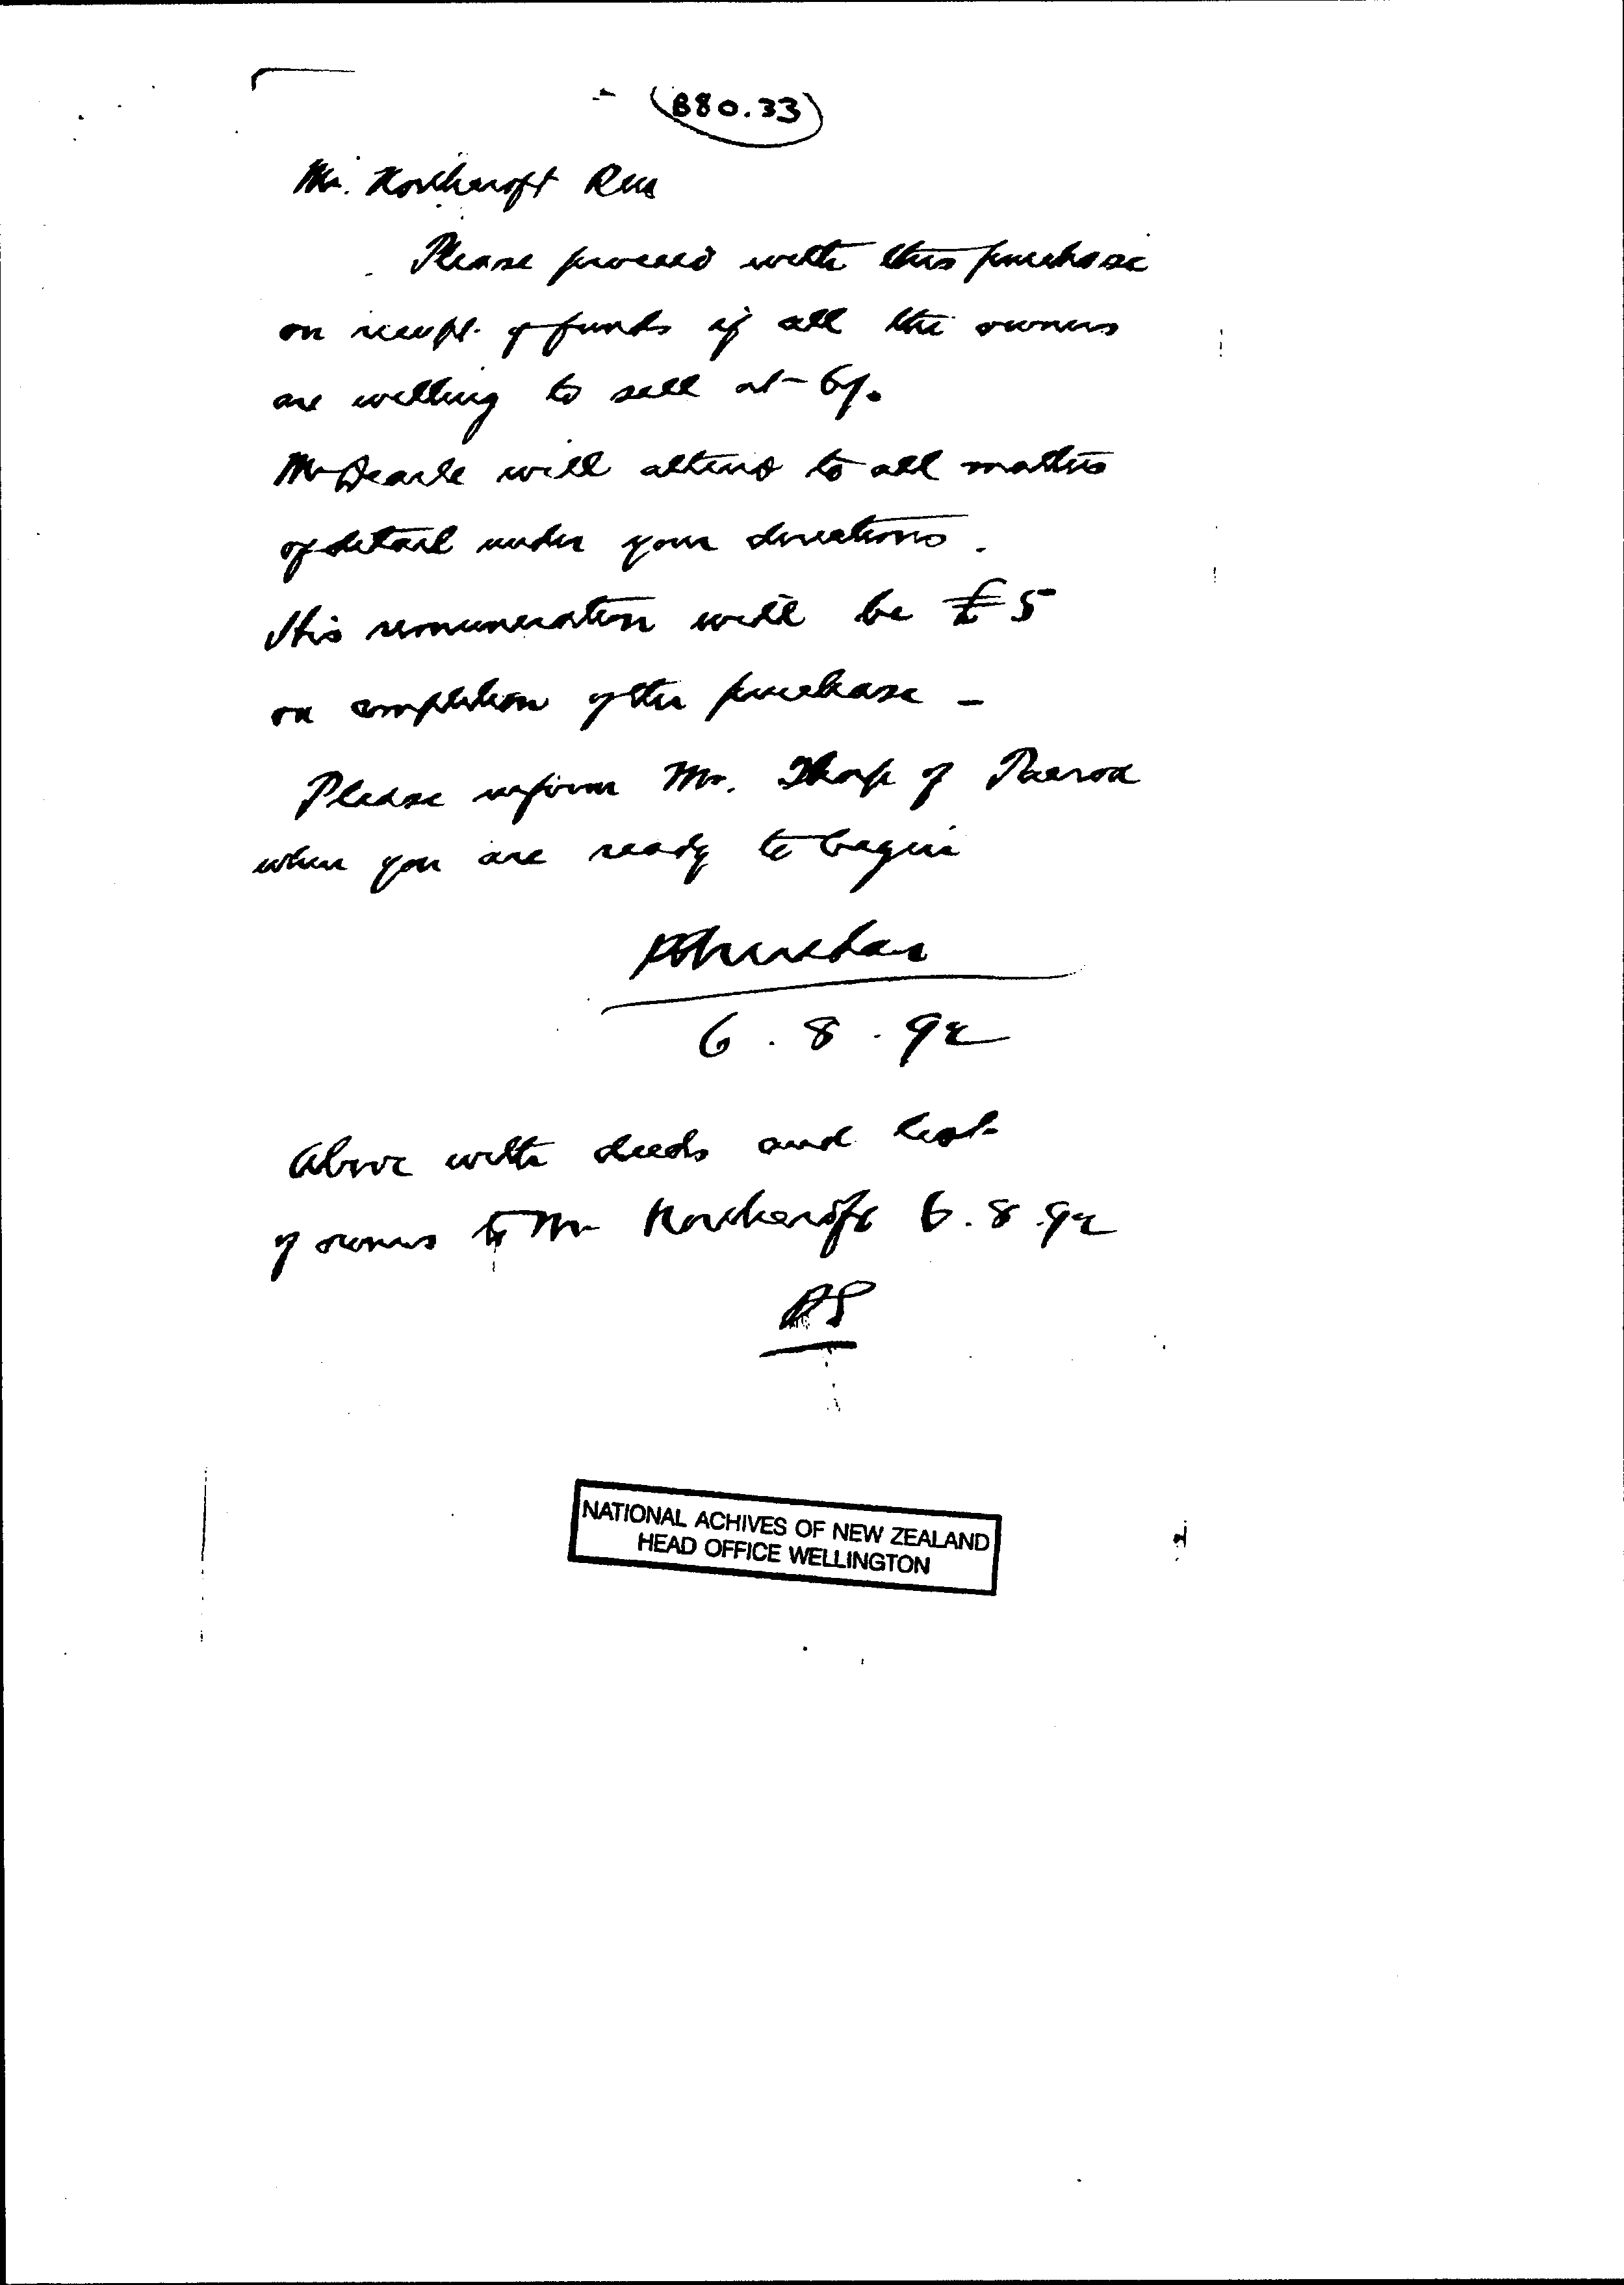 B80.33
Mr. Northcroft RM
Please proceed with this purchase
on receipt of funds if all the owners
are willing to sell at 6/.
Mr Dearle will attend to all matters
of detail under your directions.
His remuneration will be £5
on completion of the purchase -
Please inform Mr. Thorp of Paeroa
when you are ready to begin
6.8.92
Above with deeds and list
of owners to Mr Northcroft 6.8.92
PS
NATIONAL ACHIVES OF NEW ZEALAND
HEAD OFFICE WELLINGTON